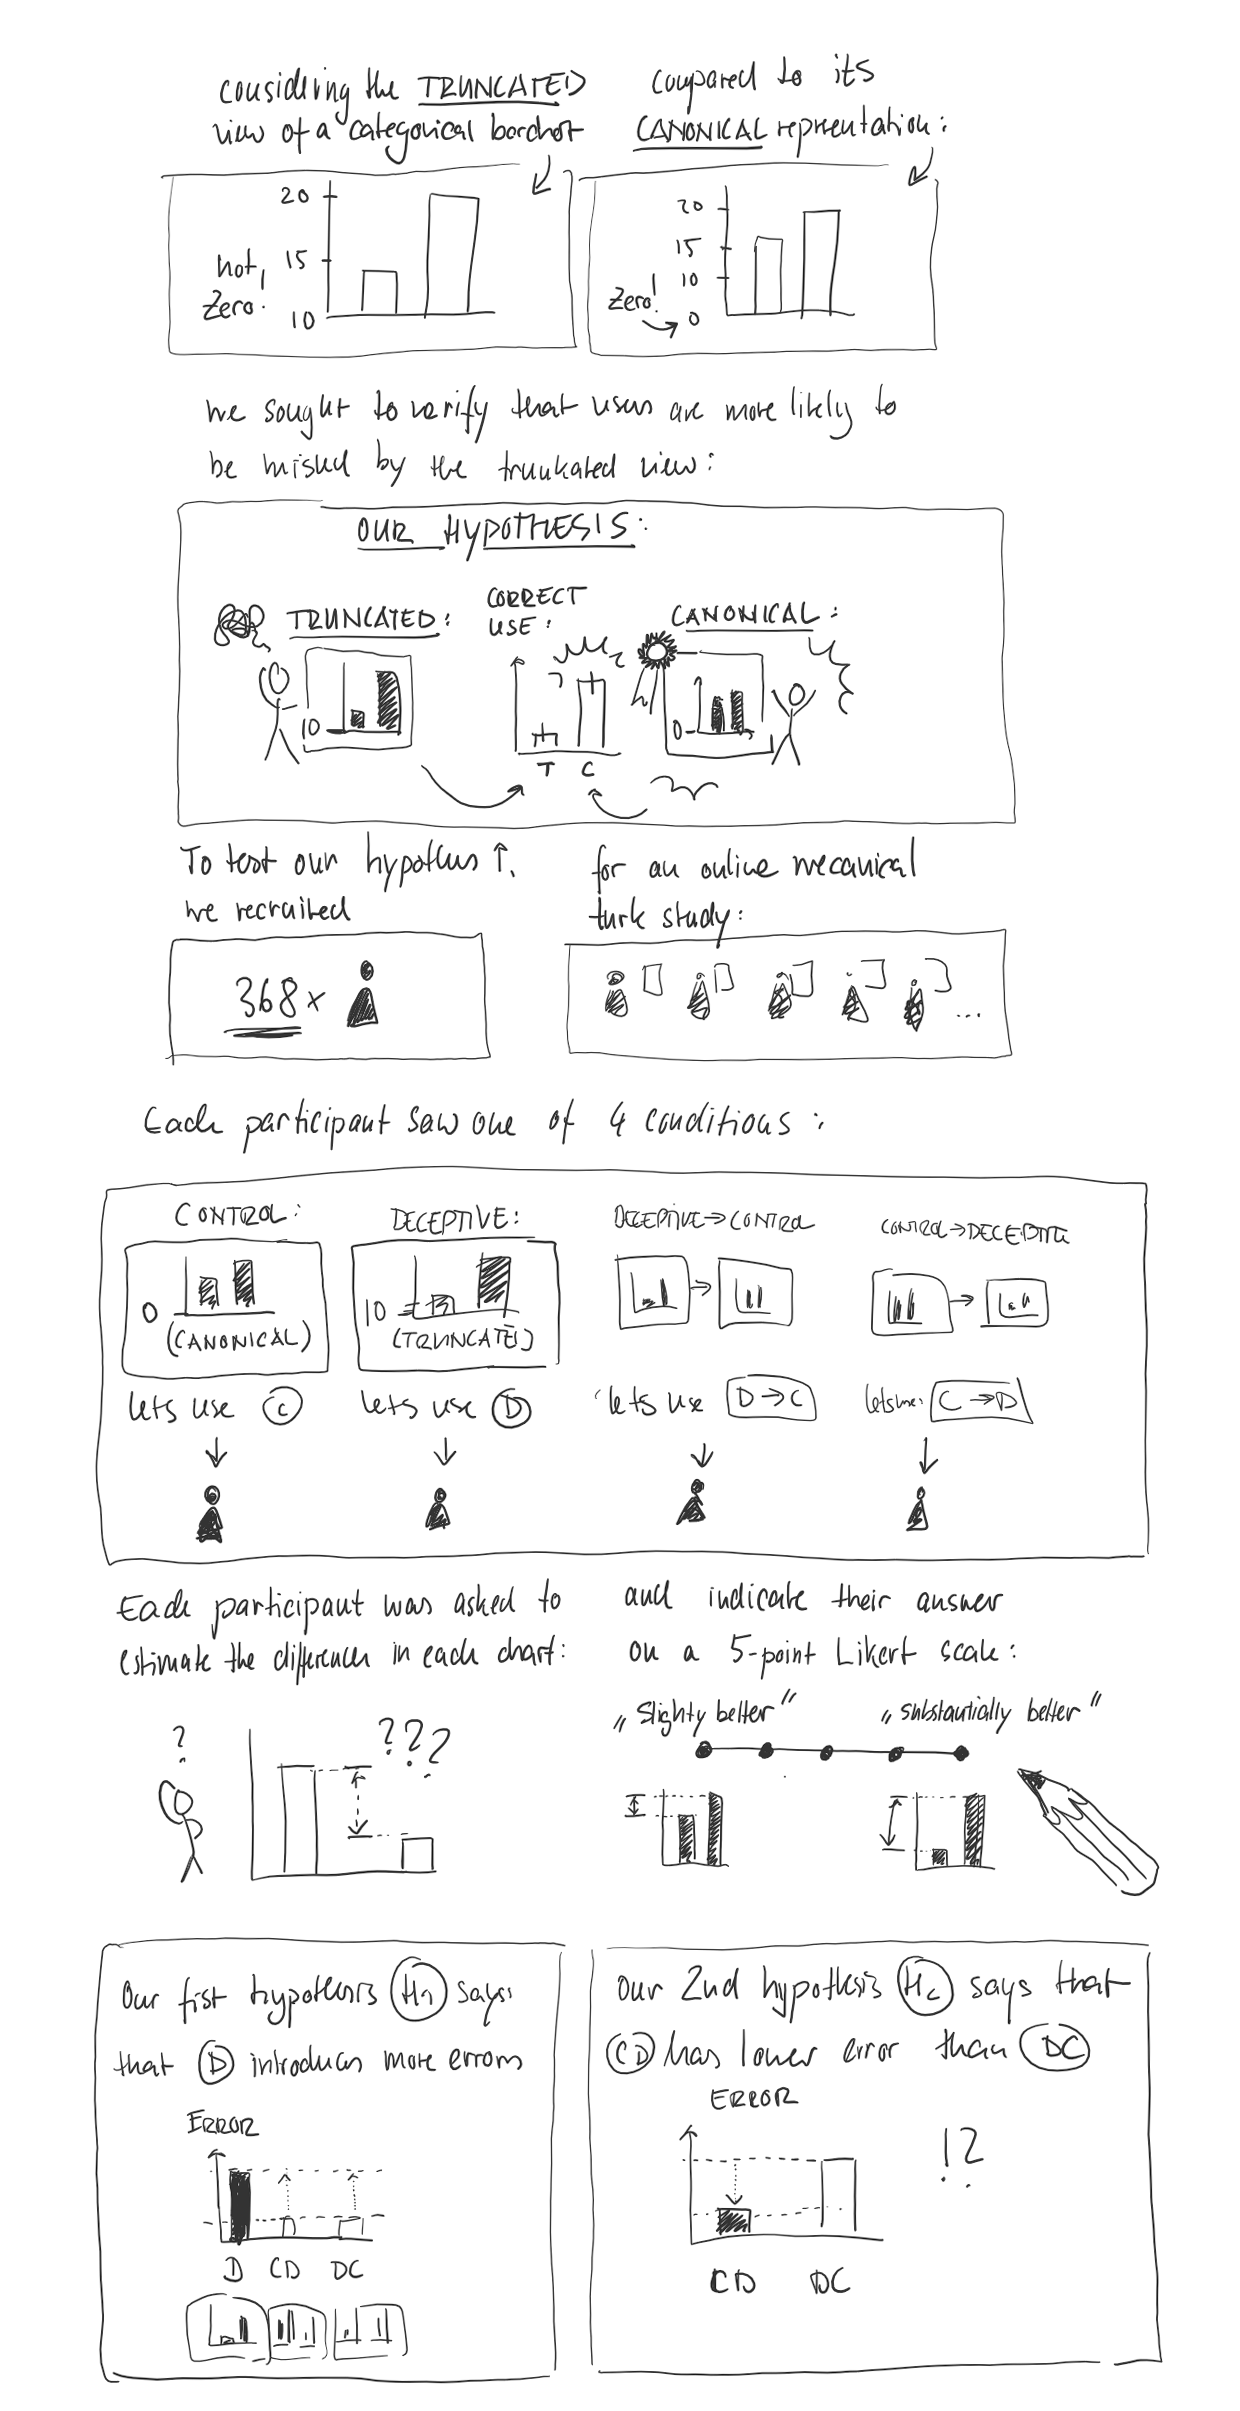 considering the TRUNCATED
view of a categorical barchart
compared to its
CANONICAL representation:
20
15
10
not
Zero!
20
15
10
0
Zero!
we sought to verify that users are more likely to
be misled by the trunkated view:
OUR HYPOTHESIS:
TRUNCATED:
CORRECT
USE:
CANONICAL:
10
T C
0
To test our hypothesis ↑,
we recruited
for an online mecanical
turk study:
368 x
...
Each participant saw one of 4 conditions:
CONTROL:
DECEPTIVE:
DECEPTIVE→CONTROL
CONTROL→DECEPTIVE
0
(CANONICAL)
10
(TRUNCATED)
lets use C
lets use D
lets use D→C
lets use: C→D
Each participant was asked to
estimate the differences in each chart:
and indicate their answer
on a 5-point Likert scale:
?
???
„Slighty better"
„substantially better"
Our first hypothesis H1 says:
that D introduces more errors
ERROR
D CD DC
Our 2nd hypothesis H2 says that
CD has lower error than DC
ERROR
!?
CD DC